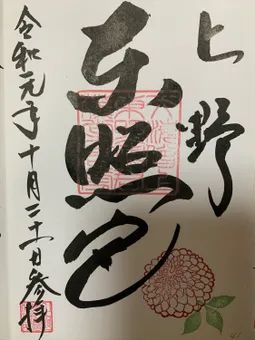 上野
東照宮
令和元年十月二十一日参拝